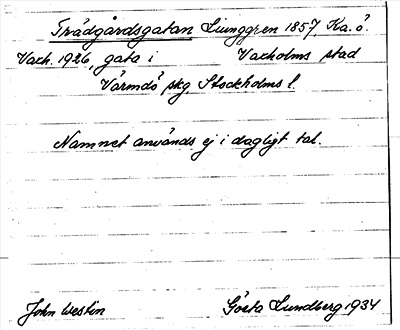 Trädgårdsgatan Ljunggren 1857, Ka. ö.
Vaxh. 1926, gata i Vaxholms stad
Värmdö skg, Stockholms l.
Namnet används ej i dagligt tal.
John Westin Gösta Lundberg 1934